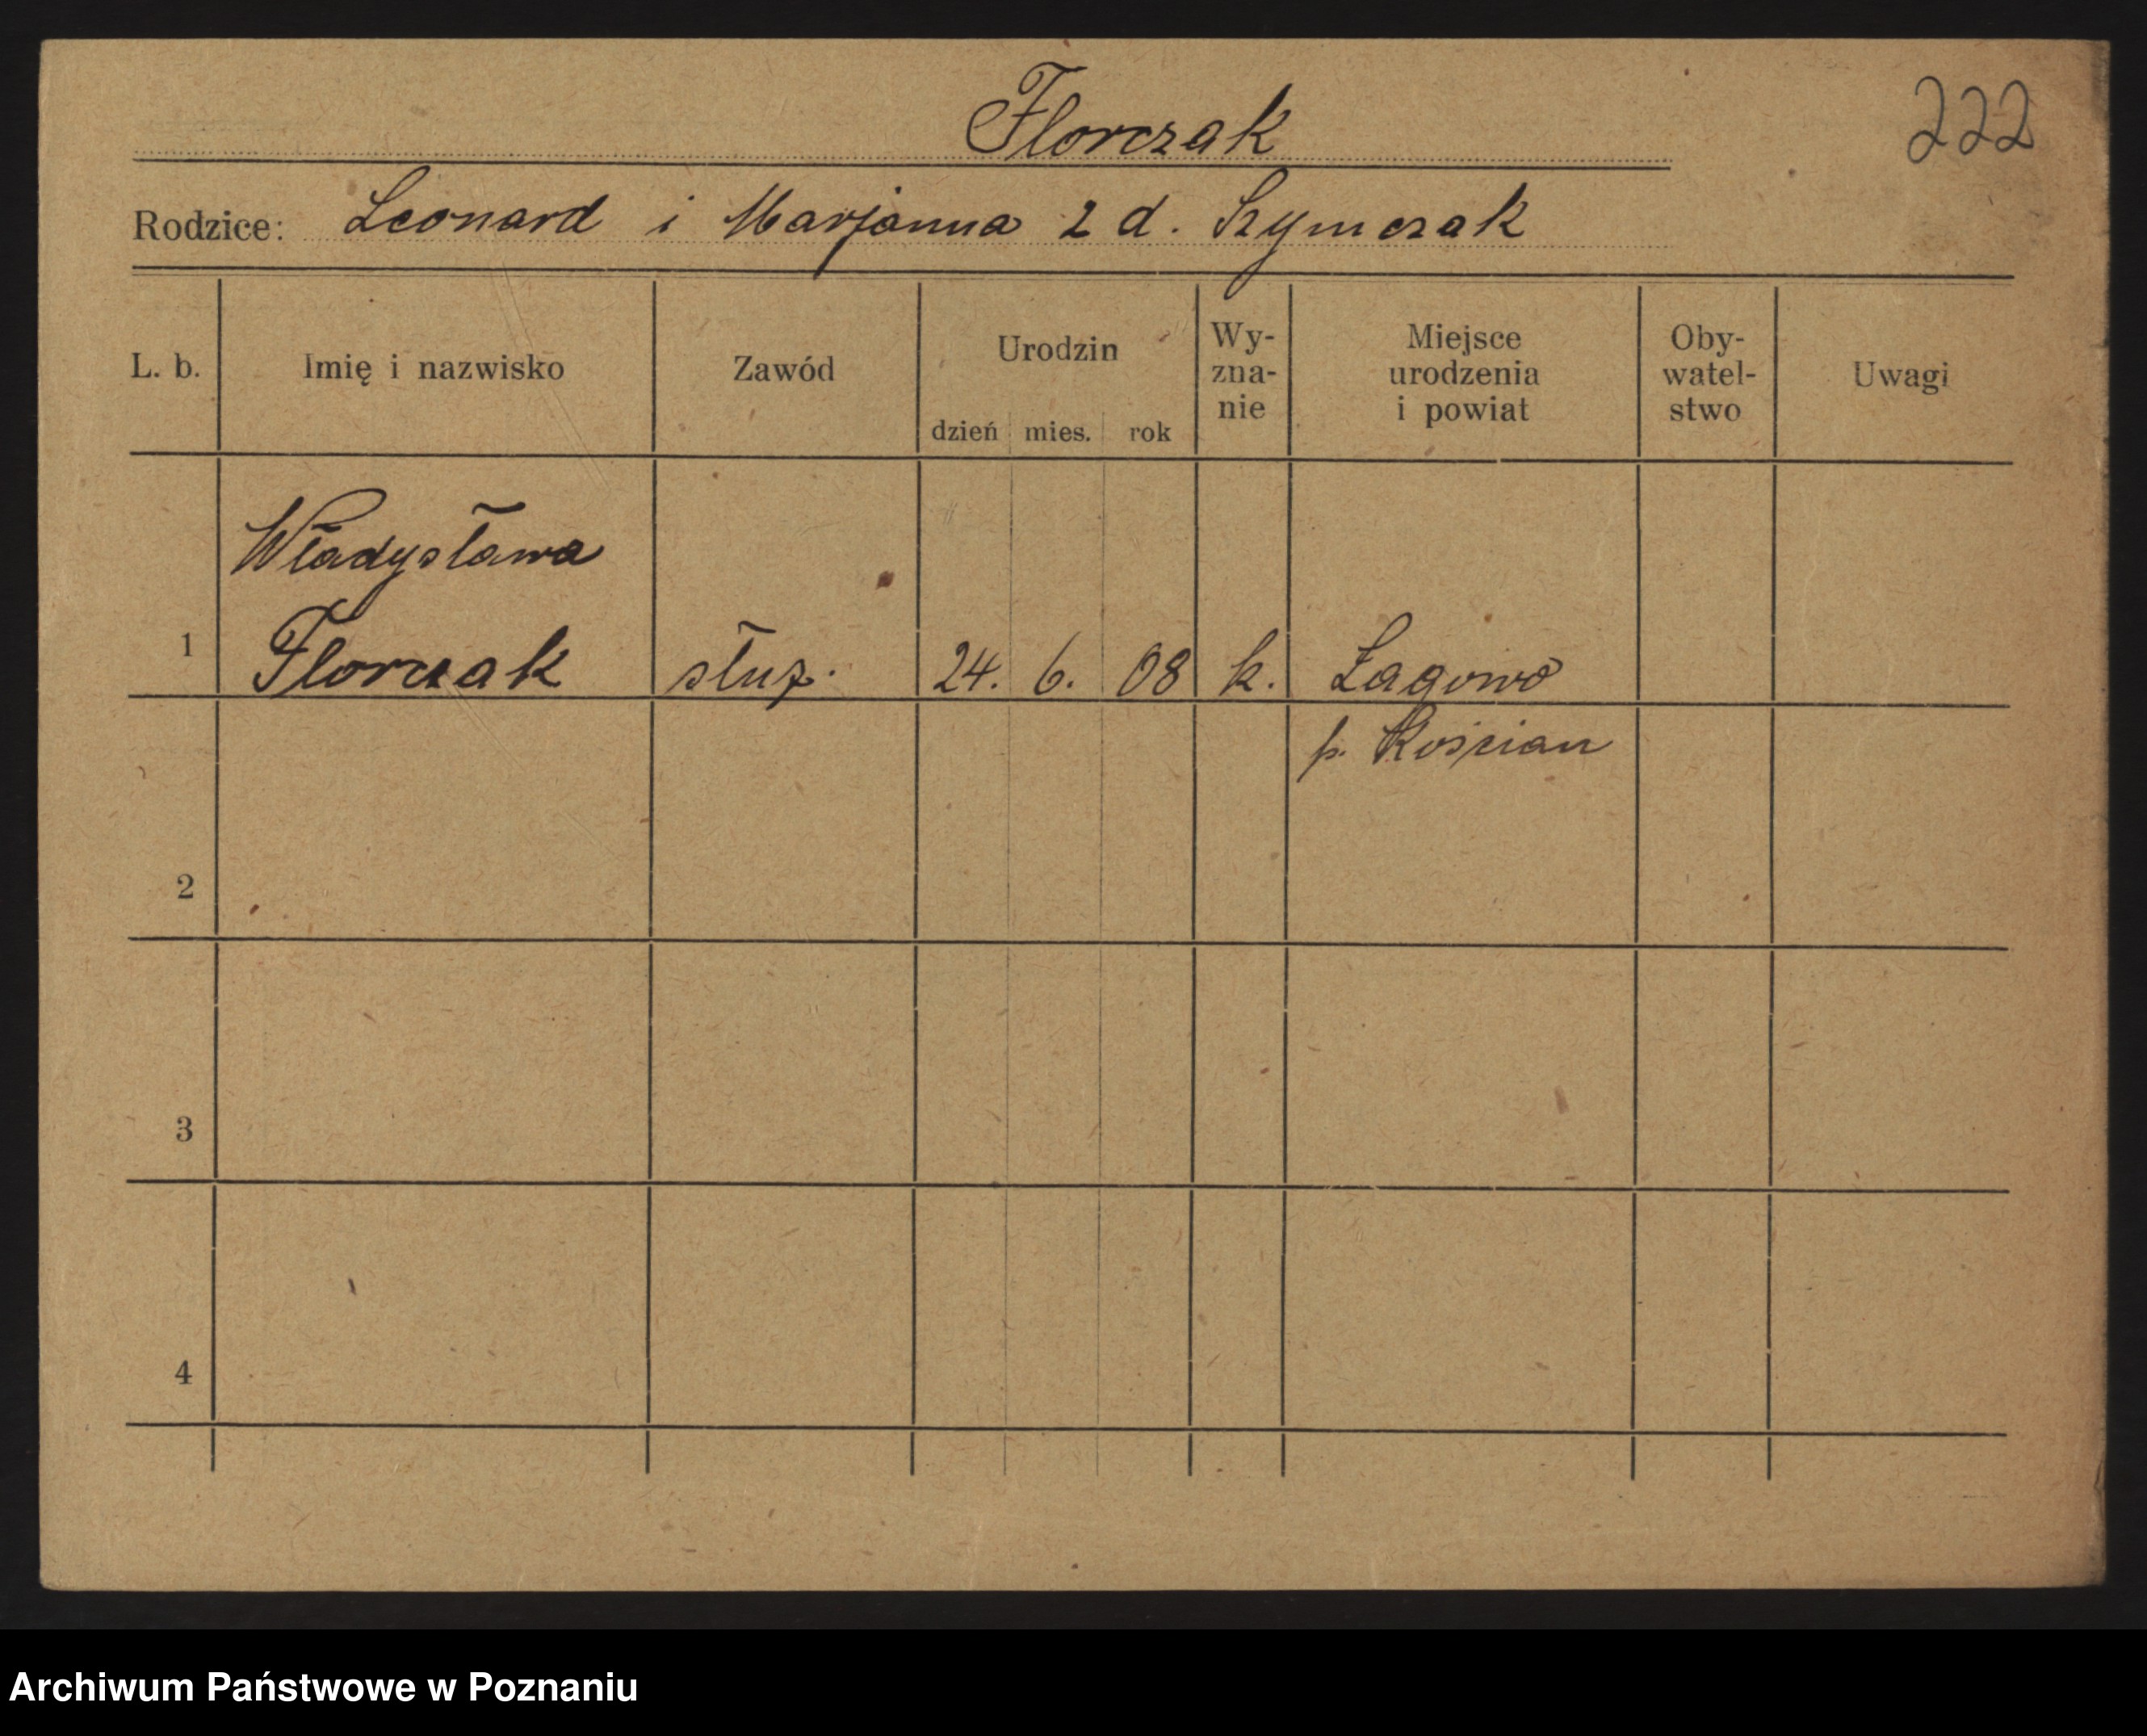 Florczak
222
Rodzice: Leonard i Marjanna z d. Szymczak
L. b.
Imię i nazwisko
Zawód
Urodzin
dzień mies. rok
Wy-
zna-
nie
Miejsce
urodzenia
i powiat
Oby-
watel-
stwo
Uwagi
Władysława
1 Florczak służ. 24. 6. 08 k. Łagowo
p. Kościan
2
3
4
Archiwum Państwowe w Poznaniu